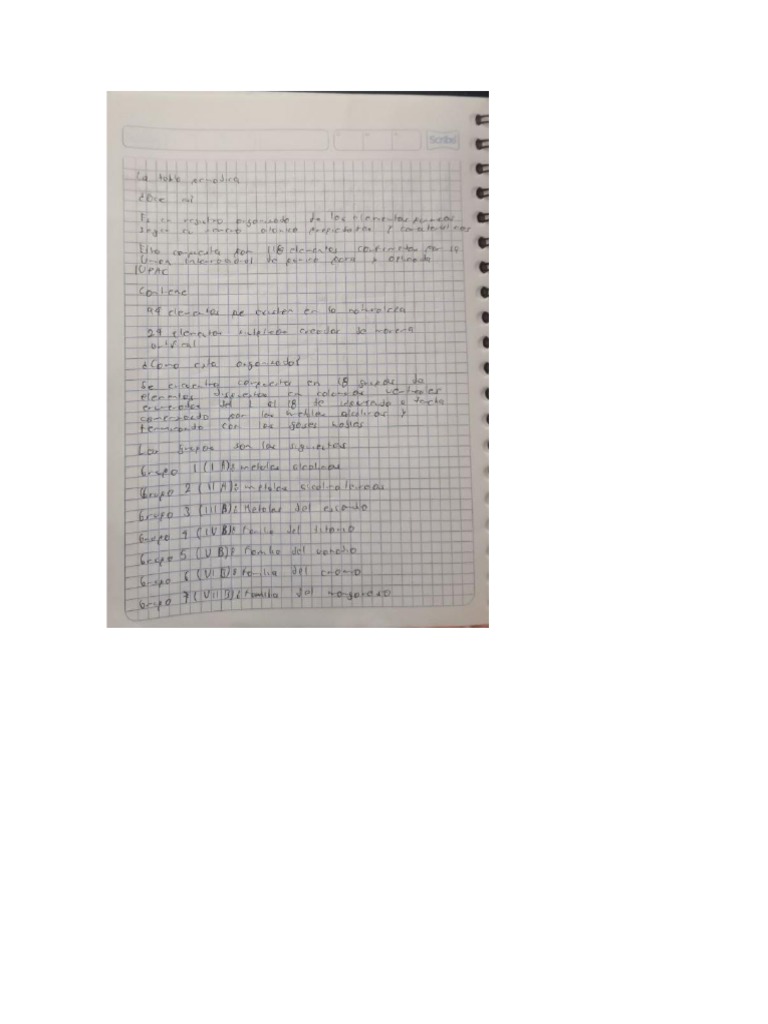 Scribe
La tabla periodica
¿Que es?
Es un registro organizado de los elementos quimicos
segun su numero atomico propiedades y caracteristicas
Esta compuesta por 118 elementos confirmados por la
Union internacional de quimica pura y aplicada
IUPAC
Contiene
94 elementos que existen en la naturaleza
24 elementos sinteticos creados de manera
artificial
¿Como esta organizada?
Se encuentra compuesta en 18 grupos de
elementos dispuestos en columnas verticales
enumerados del 1 al 18 de izquierda a derecha
comenzando por los metales alcalinos y
terminando con los gases nobles
Los grupos son los siguientes
Grupo 1 (I A): metales alcalinos
Grupo 2 (II A): metales alcalinoterreos
Grupo 3 (III B): Metales del escandio
Grupo 4 (IV B): Familia del titanio
Grupo 5 (V B): Familia del vanadio
Grupo 6 (VI B): Familia del cromo
Grupo 7 (VII B): Familia del manganeso